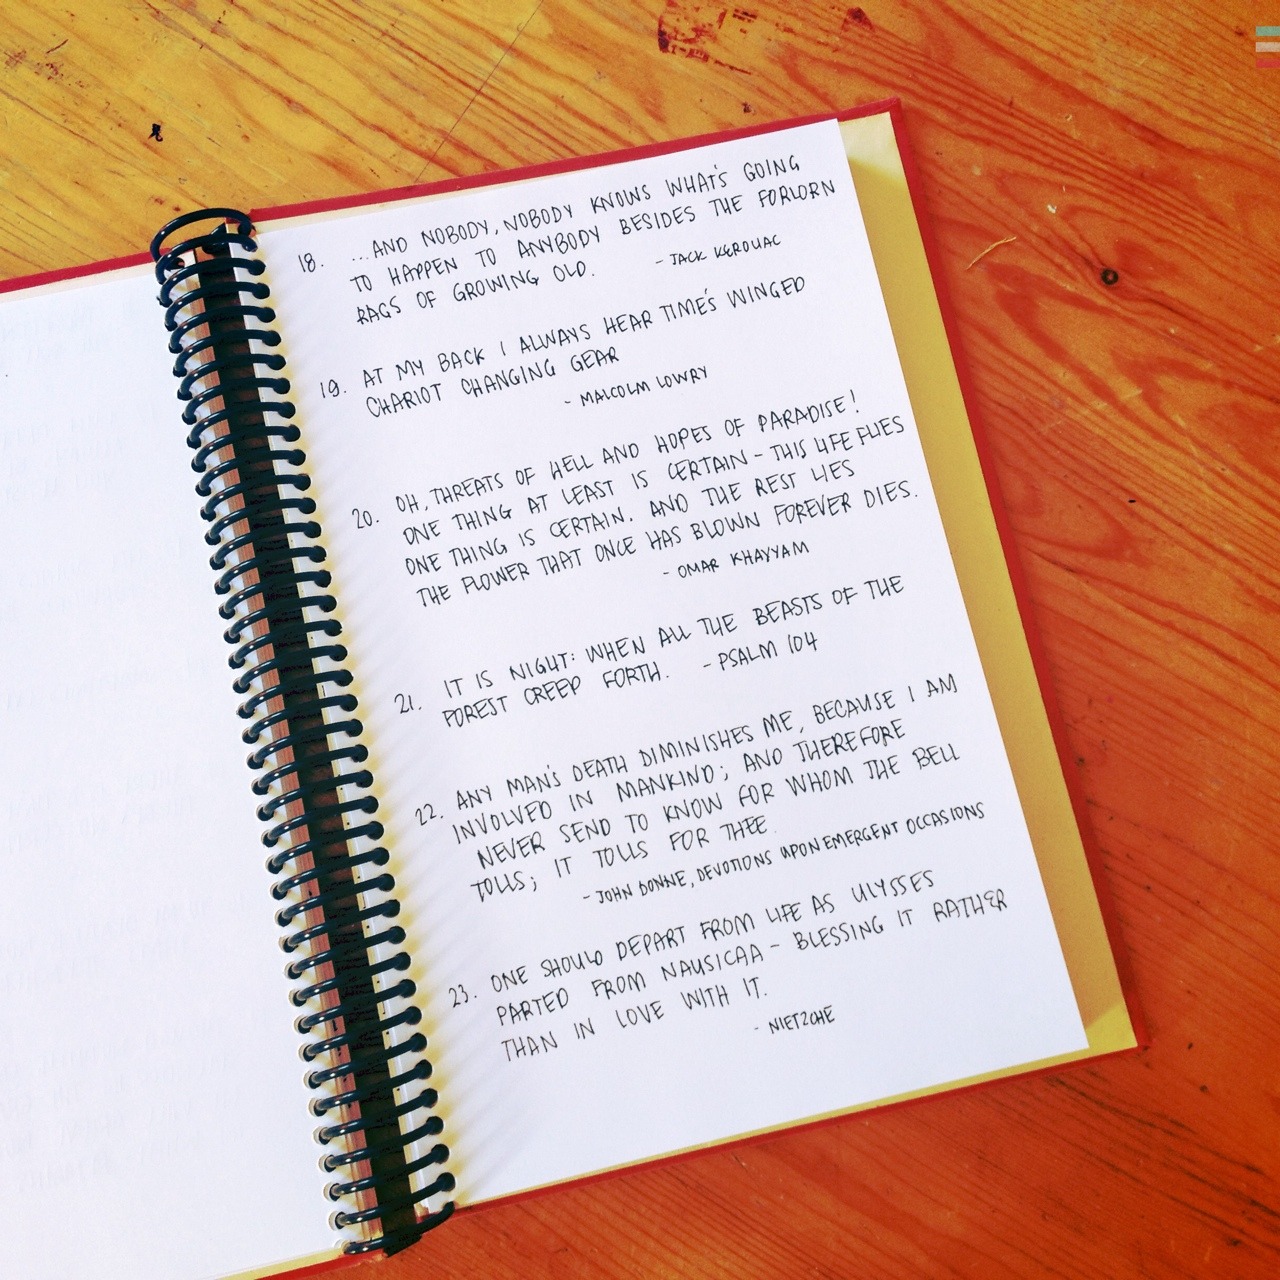 18. ...AND NOBODY, NOBODY KNOWS WHAT'S GOING
TO HAPPEN TO ANYBODY BESIDES THE FORLORN
RAGS OF GROWING OLD.
- JACK KEROUAC
19. AT MY BACK I ALWAYS HEAR TIME'S WINGED
CHARIOT CHANGING GEAR
- MALCOLM LOWRY
20. OH, THREATS OF HELL AND HOPES OF PARADISE!
ONE THING AT LEAST IS CERTAIN - THIS LIFE FLIES
ONE THING IS CERTAIN. AND THE REST LIES
THE FLOWER THAT ONCE HAS BLOWN FOREVER DIES.
- OMAR KHAYYAM
21. IT IS NIGHT: WHEN ALL THE BEASTS OF THE
FOREST CREEP FORTH. - PSALM 104
22. ANY MAN'S DEATH DIMINISHES ME, BECAUSE I AM
INVOLVED IN MANKIND; AND THEREFORE
NEVER SEND TO KNOW FOR WHOM THE BELL
TOLLS; IT TOLLS FOR THEE.
- JOHN DONNE, DEVOTIONS UPON EMERGENT OCCASIONS
23. ONE SHOULD DEPART FROM LIFE AS ULYSSES
PARTED FROM NAUSICAA - BLESSING IT RATHER
THAN IN LOVE WITH IT.
- NIETZCHE